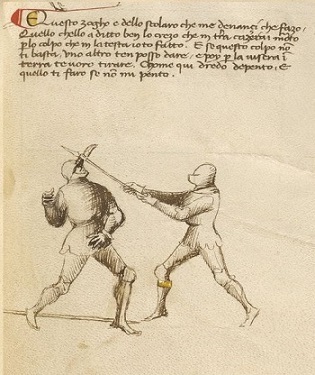 Questo zogho e dello scolaro che me denançi che fazo
Quello ch'ello a ditto ben lo crezo che in t'ra cazerai morto
p'lo colpo che in la testa io t'o fatto. E se questo colpo nō
ti basta, uno altro ten posso dare, e poy p' la
terra te voro tirare. Chome qui dredo depento, E
quello ti faro se nō mi pento.